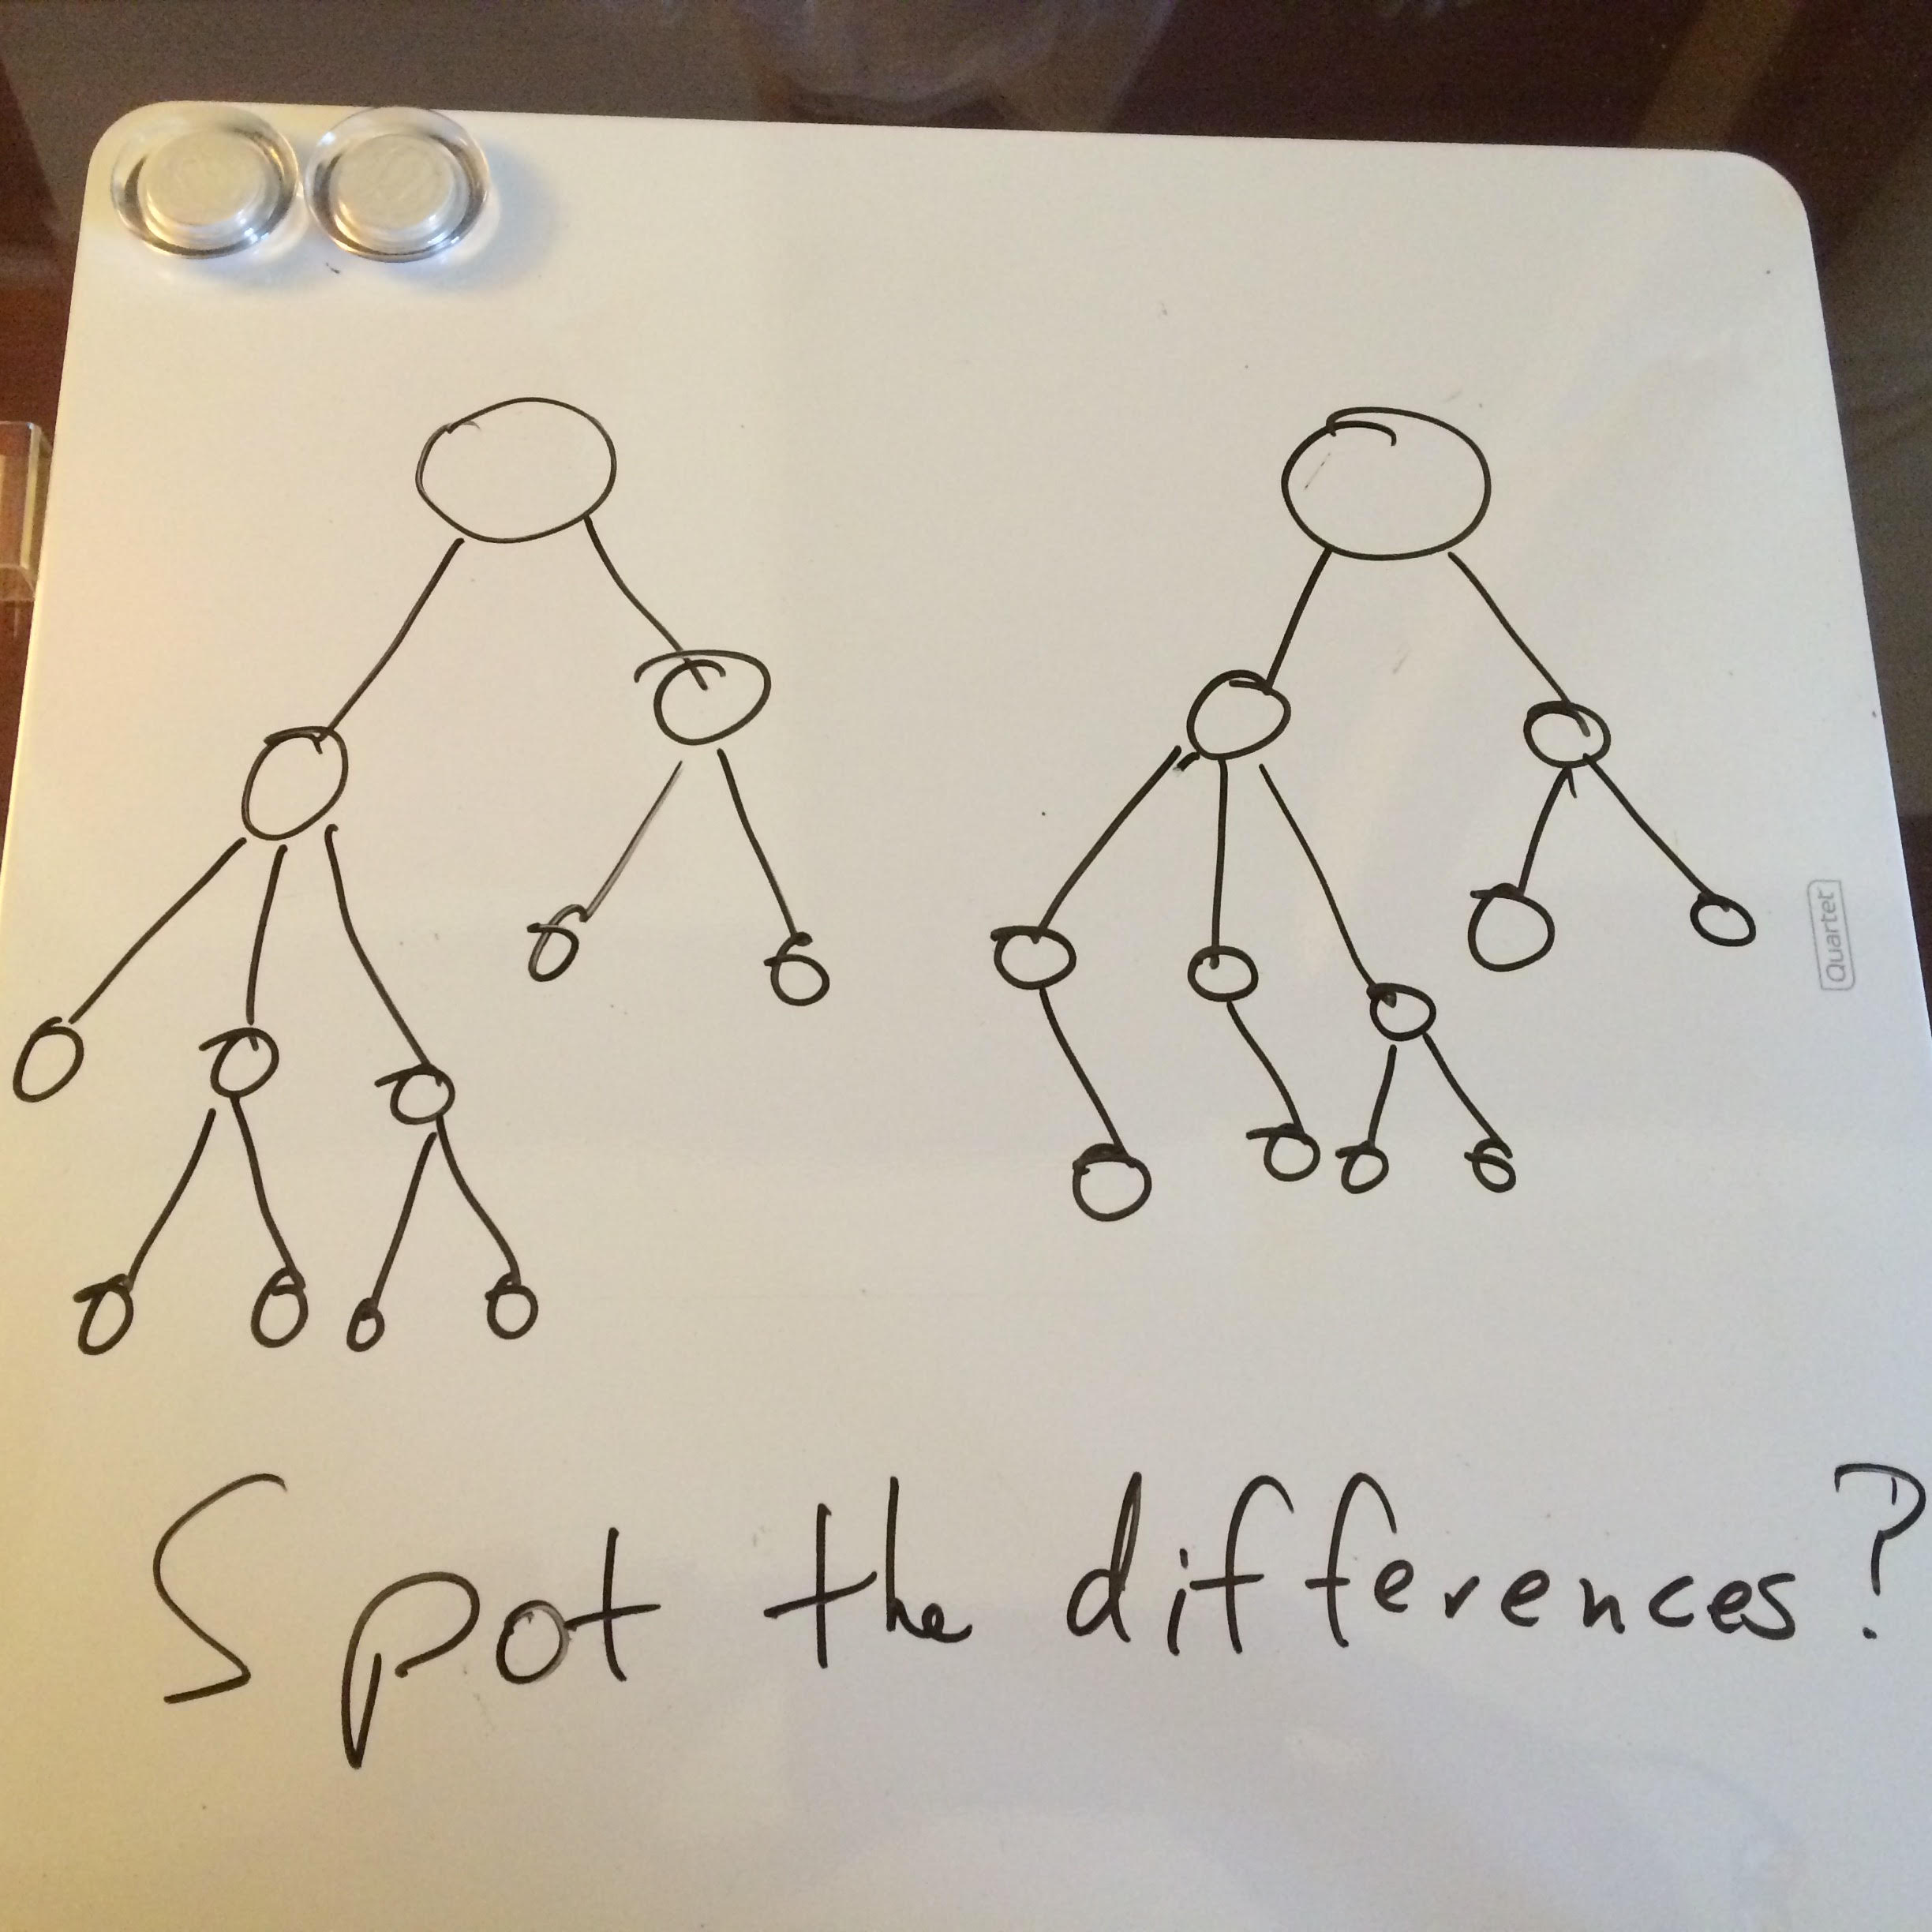 Quartet
Spot the differences?